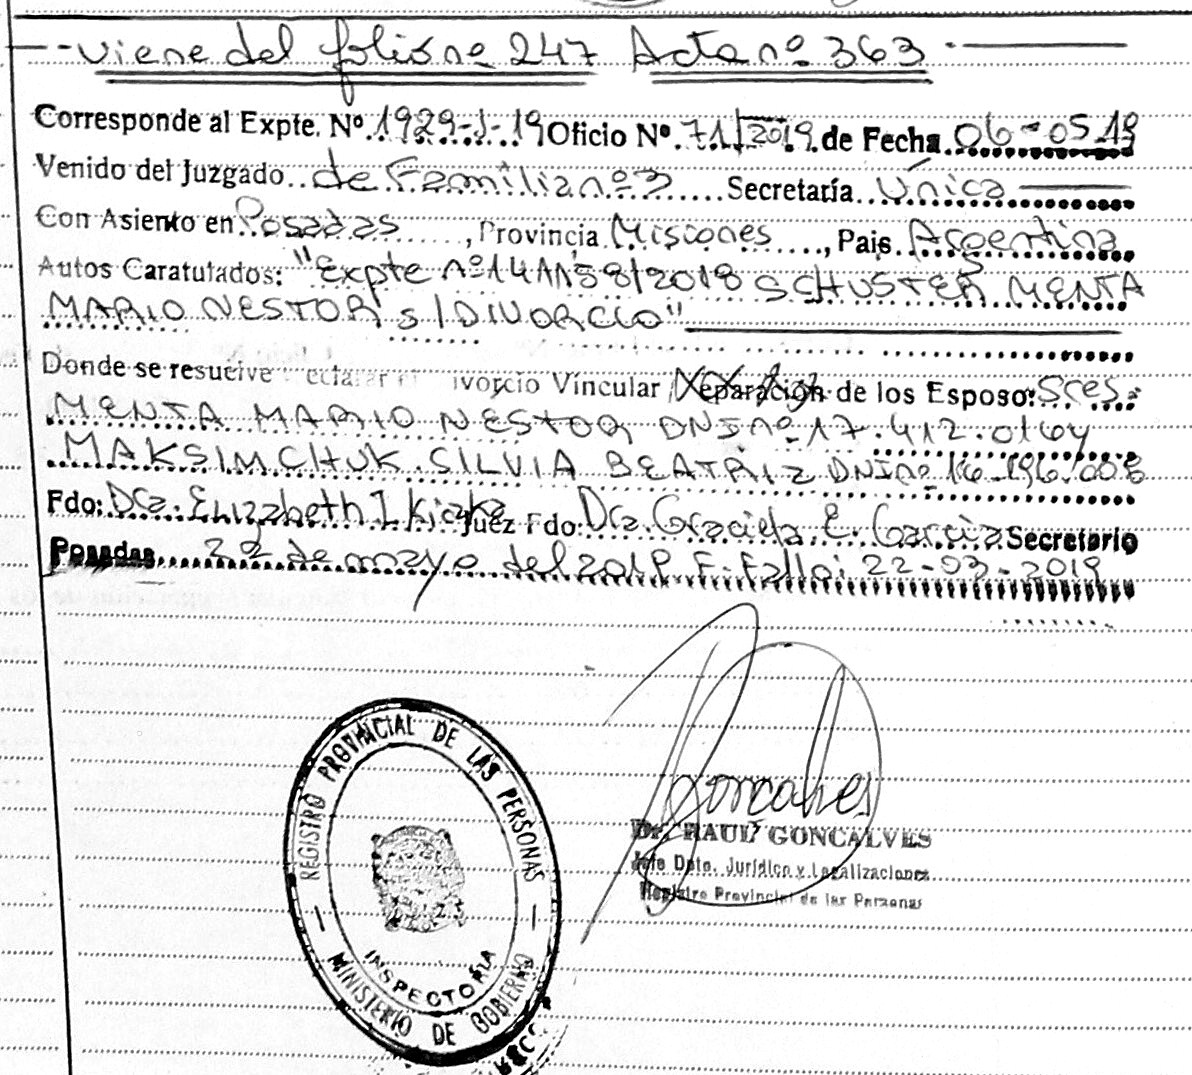 - viene del folio nº 247 Acta nº 363 -
Corresponde al Expte. Nº 1929-J-19 Oficio Nº 71/2019 de Fecha 06-05-19
Venido del Juzgado de Familia nº 3 Secretaría Única
Con Asiento en Posadas, Provincia Misiones, Pais Argentina
Autos Caratulados: "Expte nº 141158/2018 SCHUSTER MENTA
MARIO NESTOR s/DIVORCIO"
Donde se resuelve ivorcio Vincular de los Esposo: Sres.
MENTA MARIO NESTOR, DNI nº 17.412.016 y
MAKSIMCHUK SILVIA BEATRIZ DNI nº 16.196.008
Fdo: Dra. Elizabeth Juez Fdo: Dra. Graciela E. Garcia Secretario
Posadas 22 de mayo del 2019 F. Fallo: 22-03-2019
REGISTRO PROVINCIAL DE LAS PERSONAS
INSPECTORIA
MINISTERIO DE GOBIERNO
Goncalves
Dr. RAUL GONCALVES
Jefe Dpto. Jurídico y Legalizaciones
Registro Provincial de las Personas